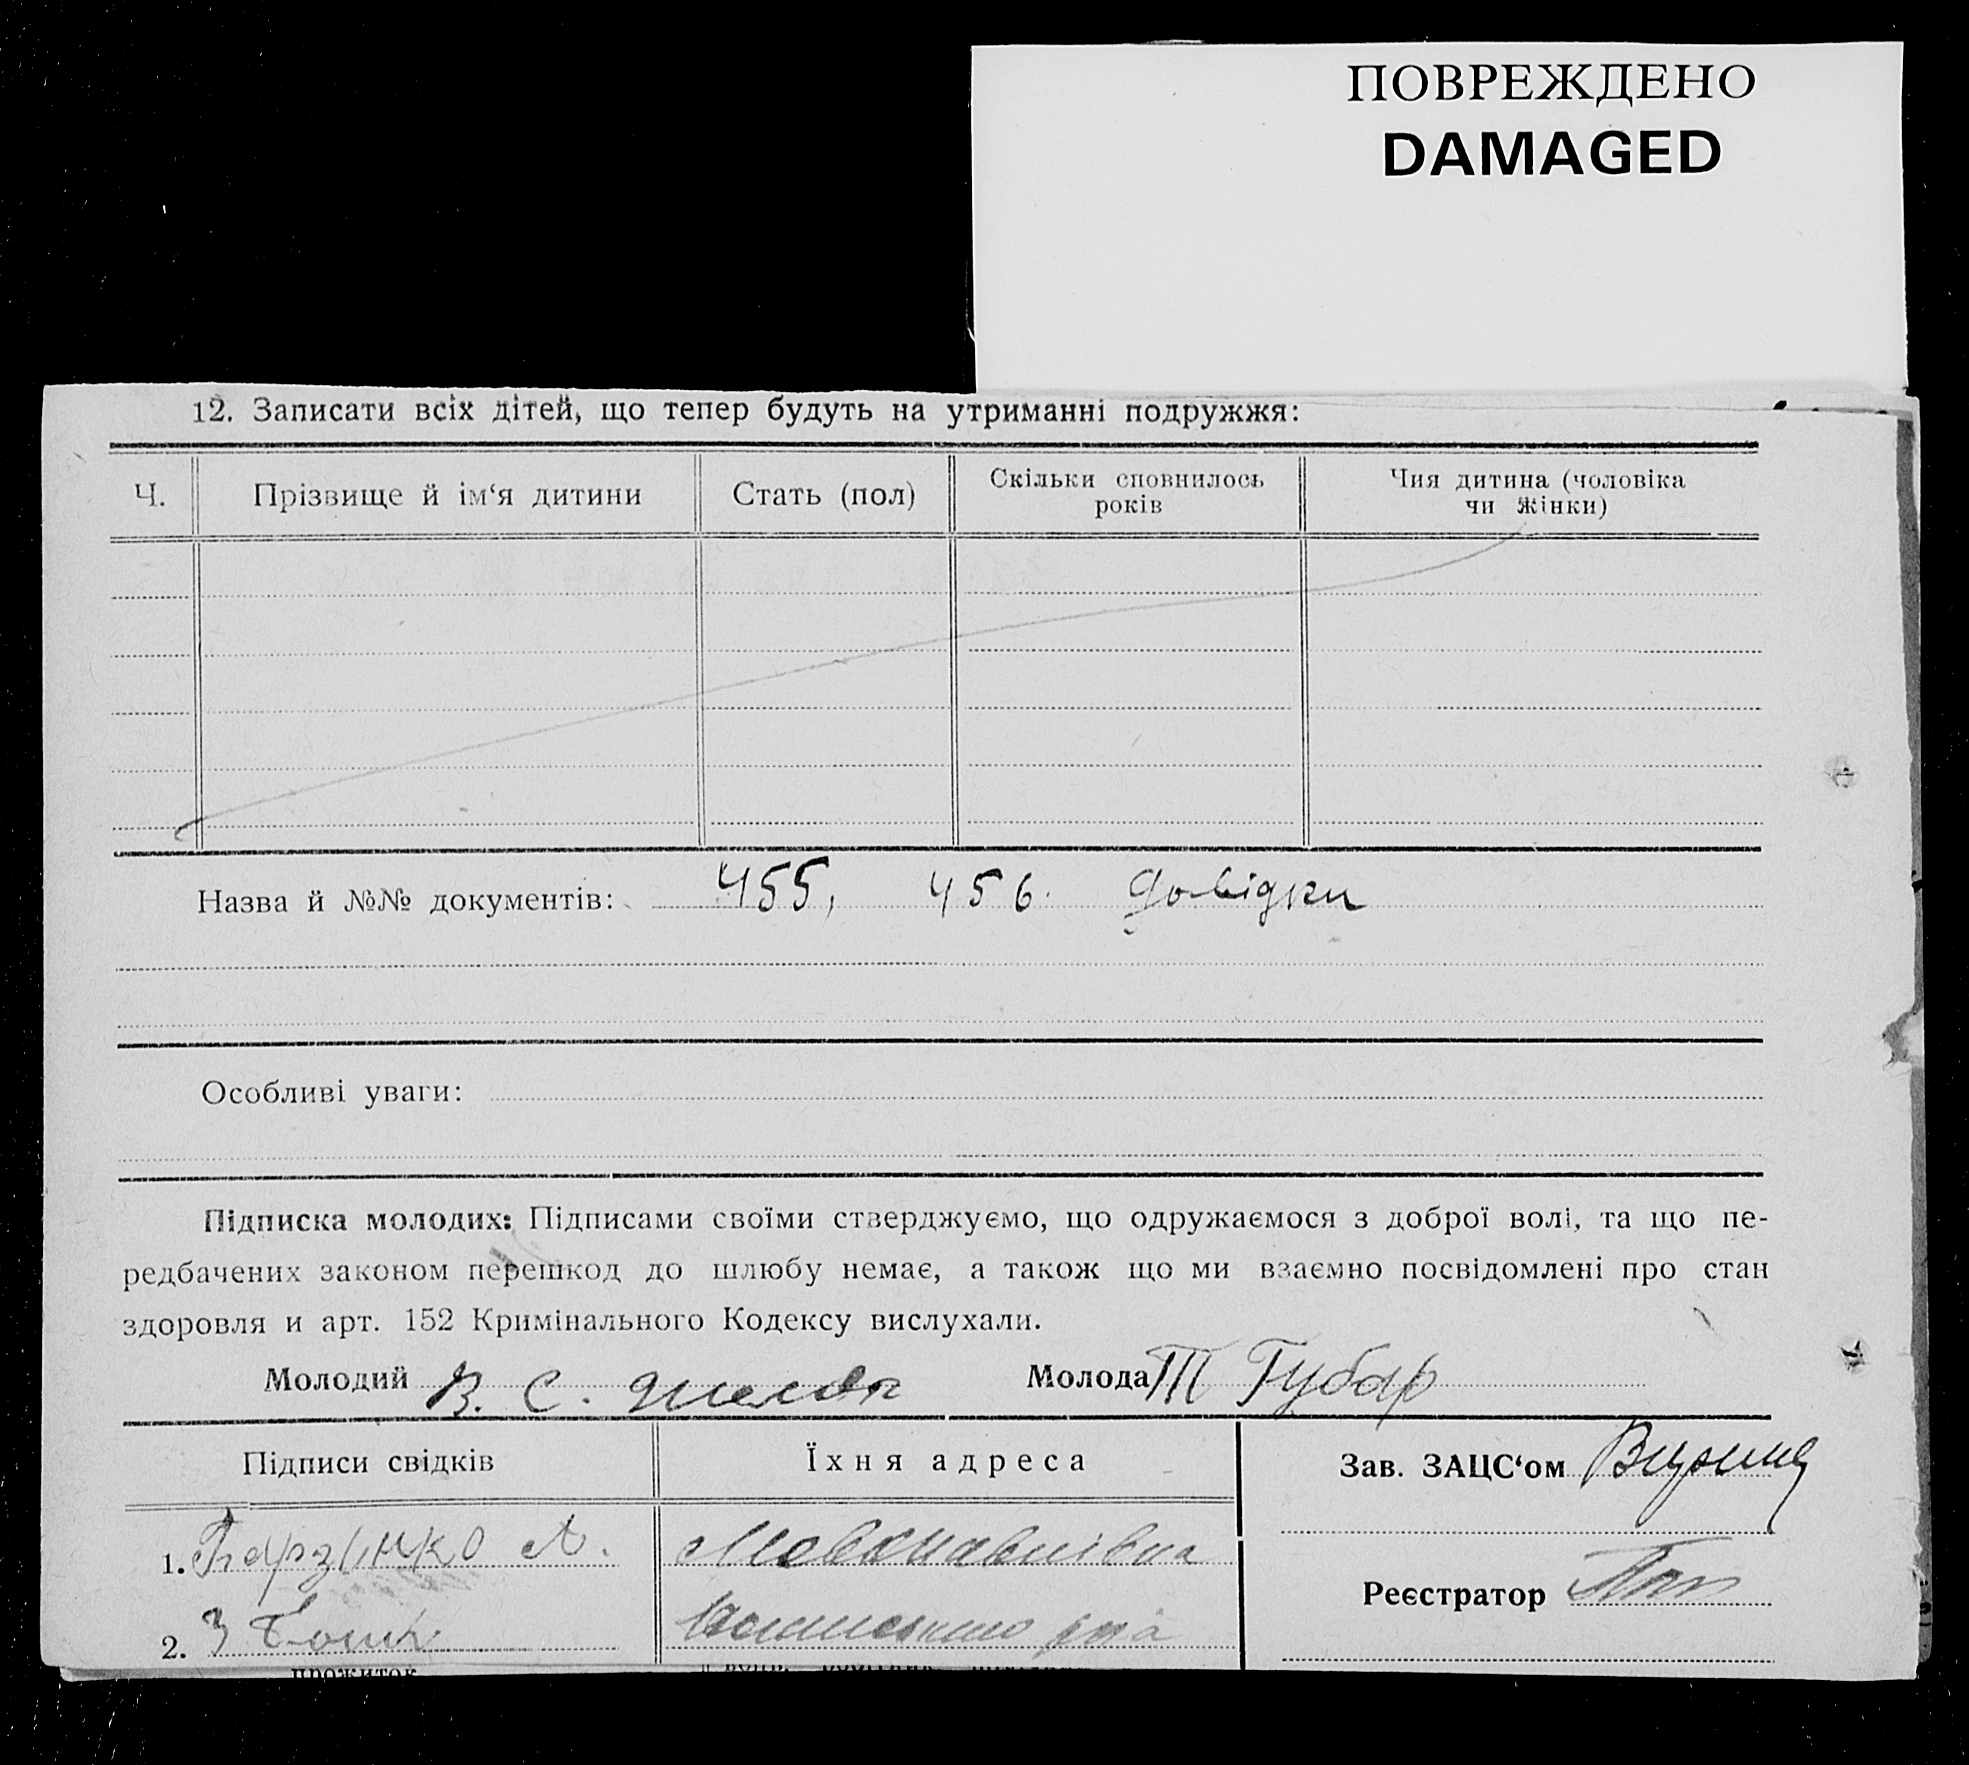 ПОВРЕЖДЕНО
DAMAGED
12. Записати всіх дітей, що тепер будуть на утриманні подружжя:
Ч. Прізвище й ім‘я дитини Стать (пол) Скільки сповнилось років Чия дитина (чоловіка чи жінки)
Назва й №№ документів: 455, 456. Довідки
Особливі уваги:
Підписка молодих: Підписами своїми стверджуємо, що одружаємося з доброї волі, та що пе-
редбачених законом перешкод до шлюбу немає, а також що ми взаємно посвідомлені про стан
здоровля и арт. 152 Кримінального Кодексу вислухали.
Молодий В. С. Молода Т Губар
Підписи свідків Їхня адреса Зав. ЗАЦС‘ом
1.
Реєстратор
2.
прожиток